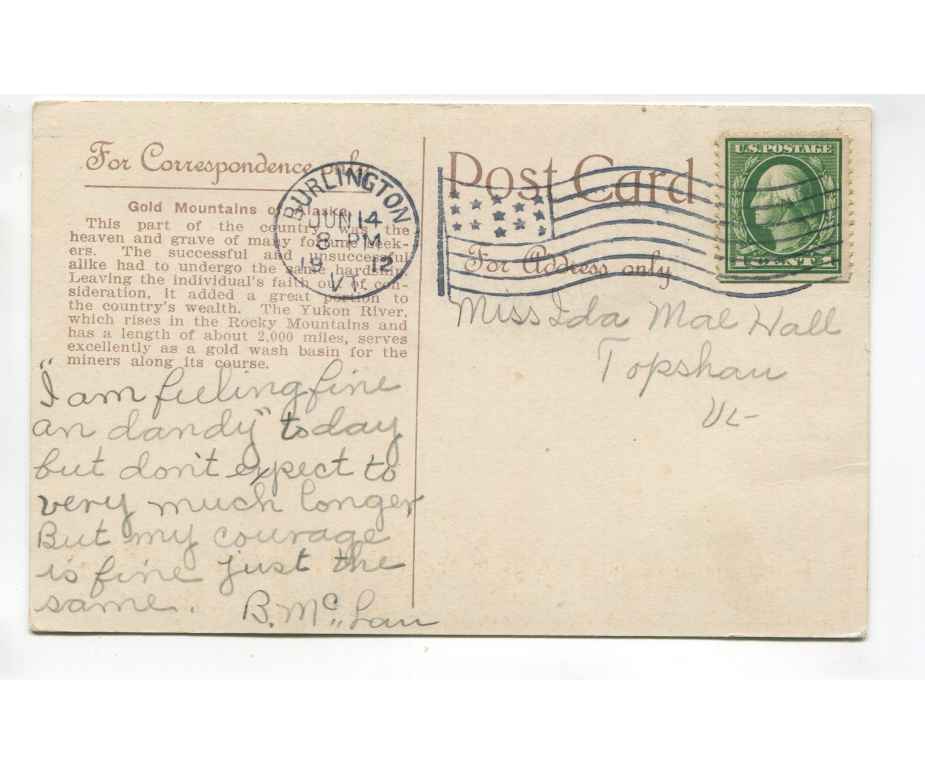 For Correspondence only
Post Card
For Address only
U.S. POSTAGE
BURLINGTON
JUN 14
8 PM
19 12
VT.
Gold Mountains of Alaska.
This part of the country was the
heaven and grave of many fortune seek-
ers. The successful and unsuccessful
alike had to undergo the same hardship.
Leaving the individual's faith out of con-
sideration, it added a great portion to
the country's wealth. The Yukon River,
which rises in the Rocky Mountains and
has a length of about 2,000 miles, serves
excellently as a gold wash basin for the
miners along its course.
"I am feeling fine
an dandy" today
but don't expect to
very much longer
But my courage
is fine just the
same. B. Mc.
Miss Ida Mae Hall
Topsham
Vt-